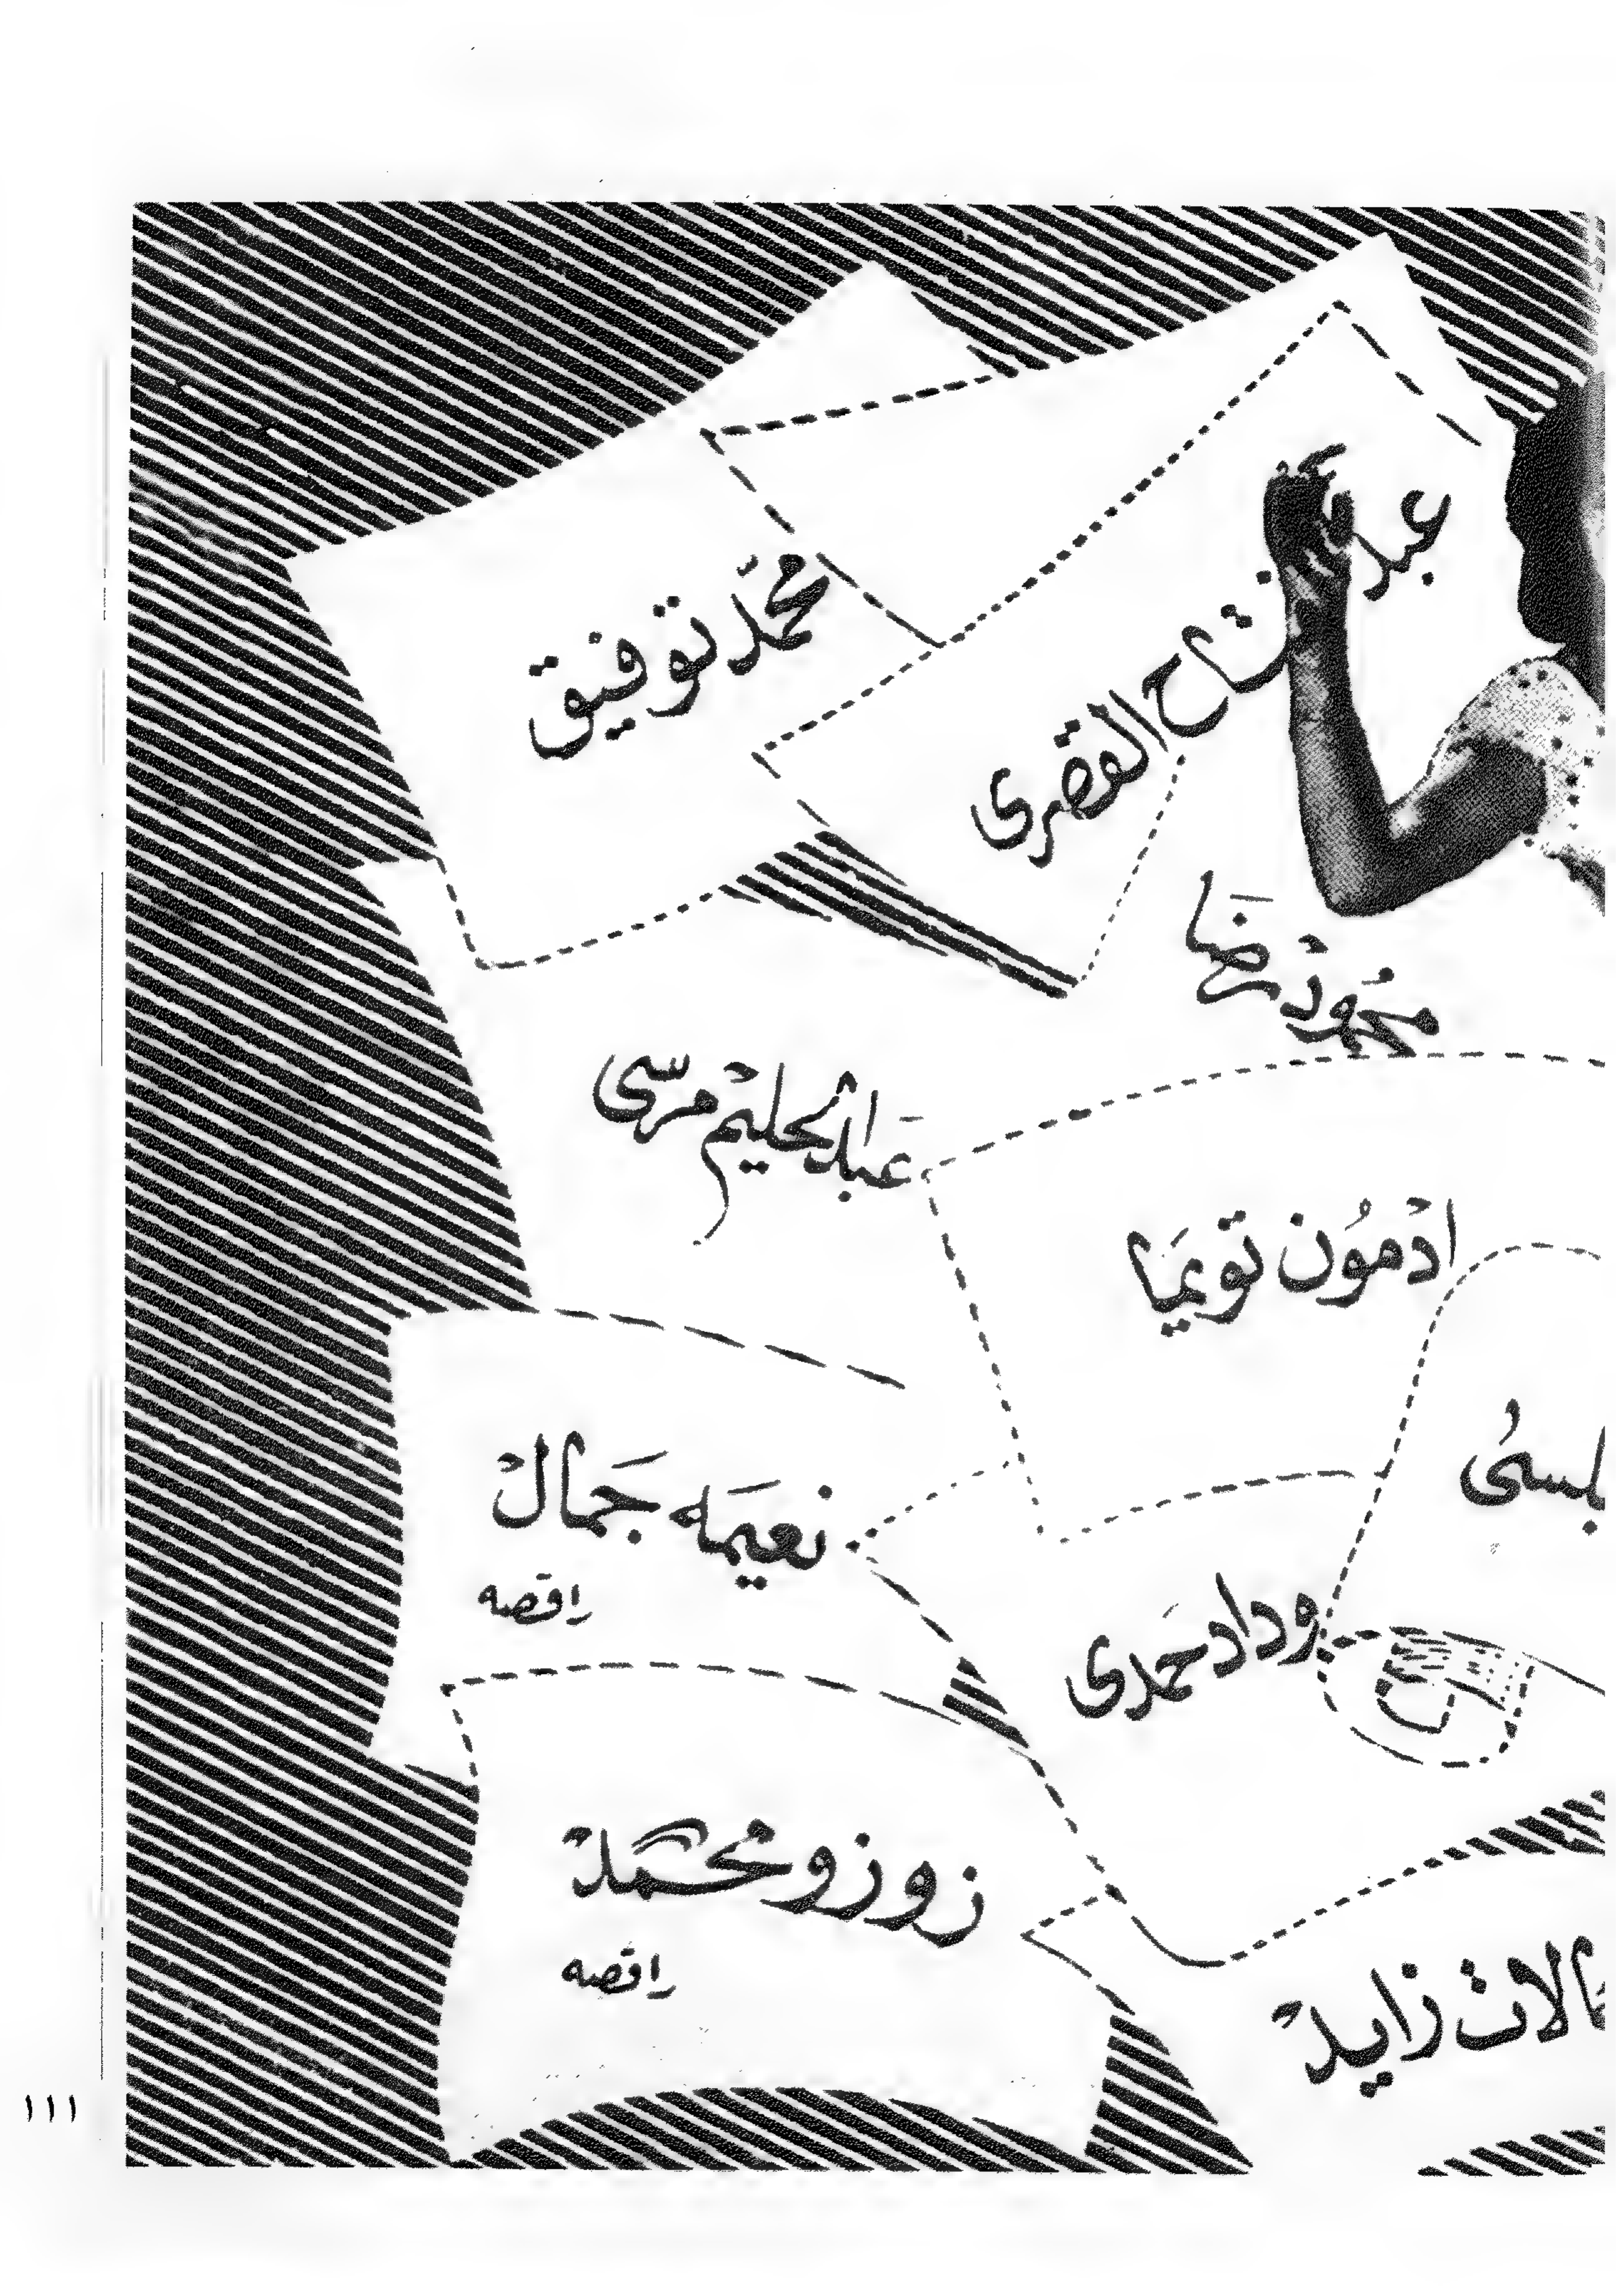 محمد توفيق
عبد الفتاح القصرى
محمود رضا
عبد الحليم مرسى
ادمون تويما
نعيمه جمال
راقصه
وداد حمدى
زوزو محمد
راقصه
زايد
١١١